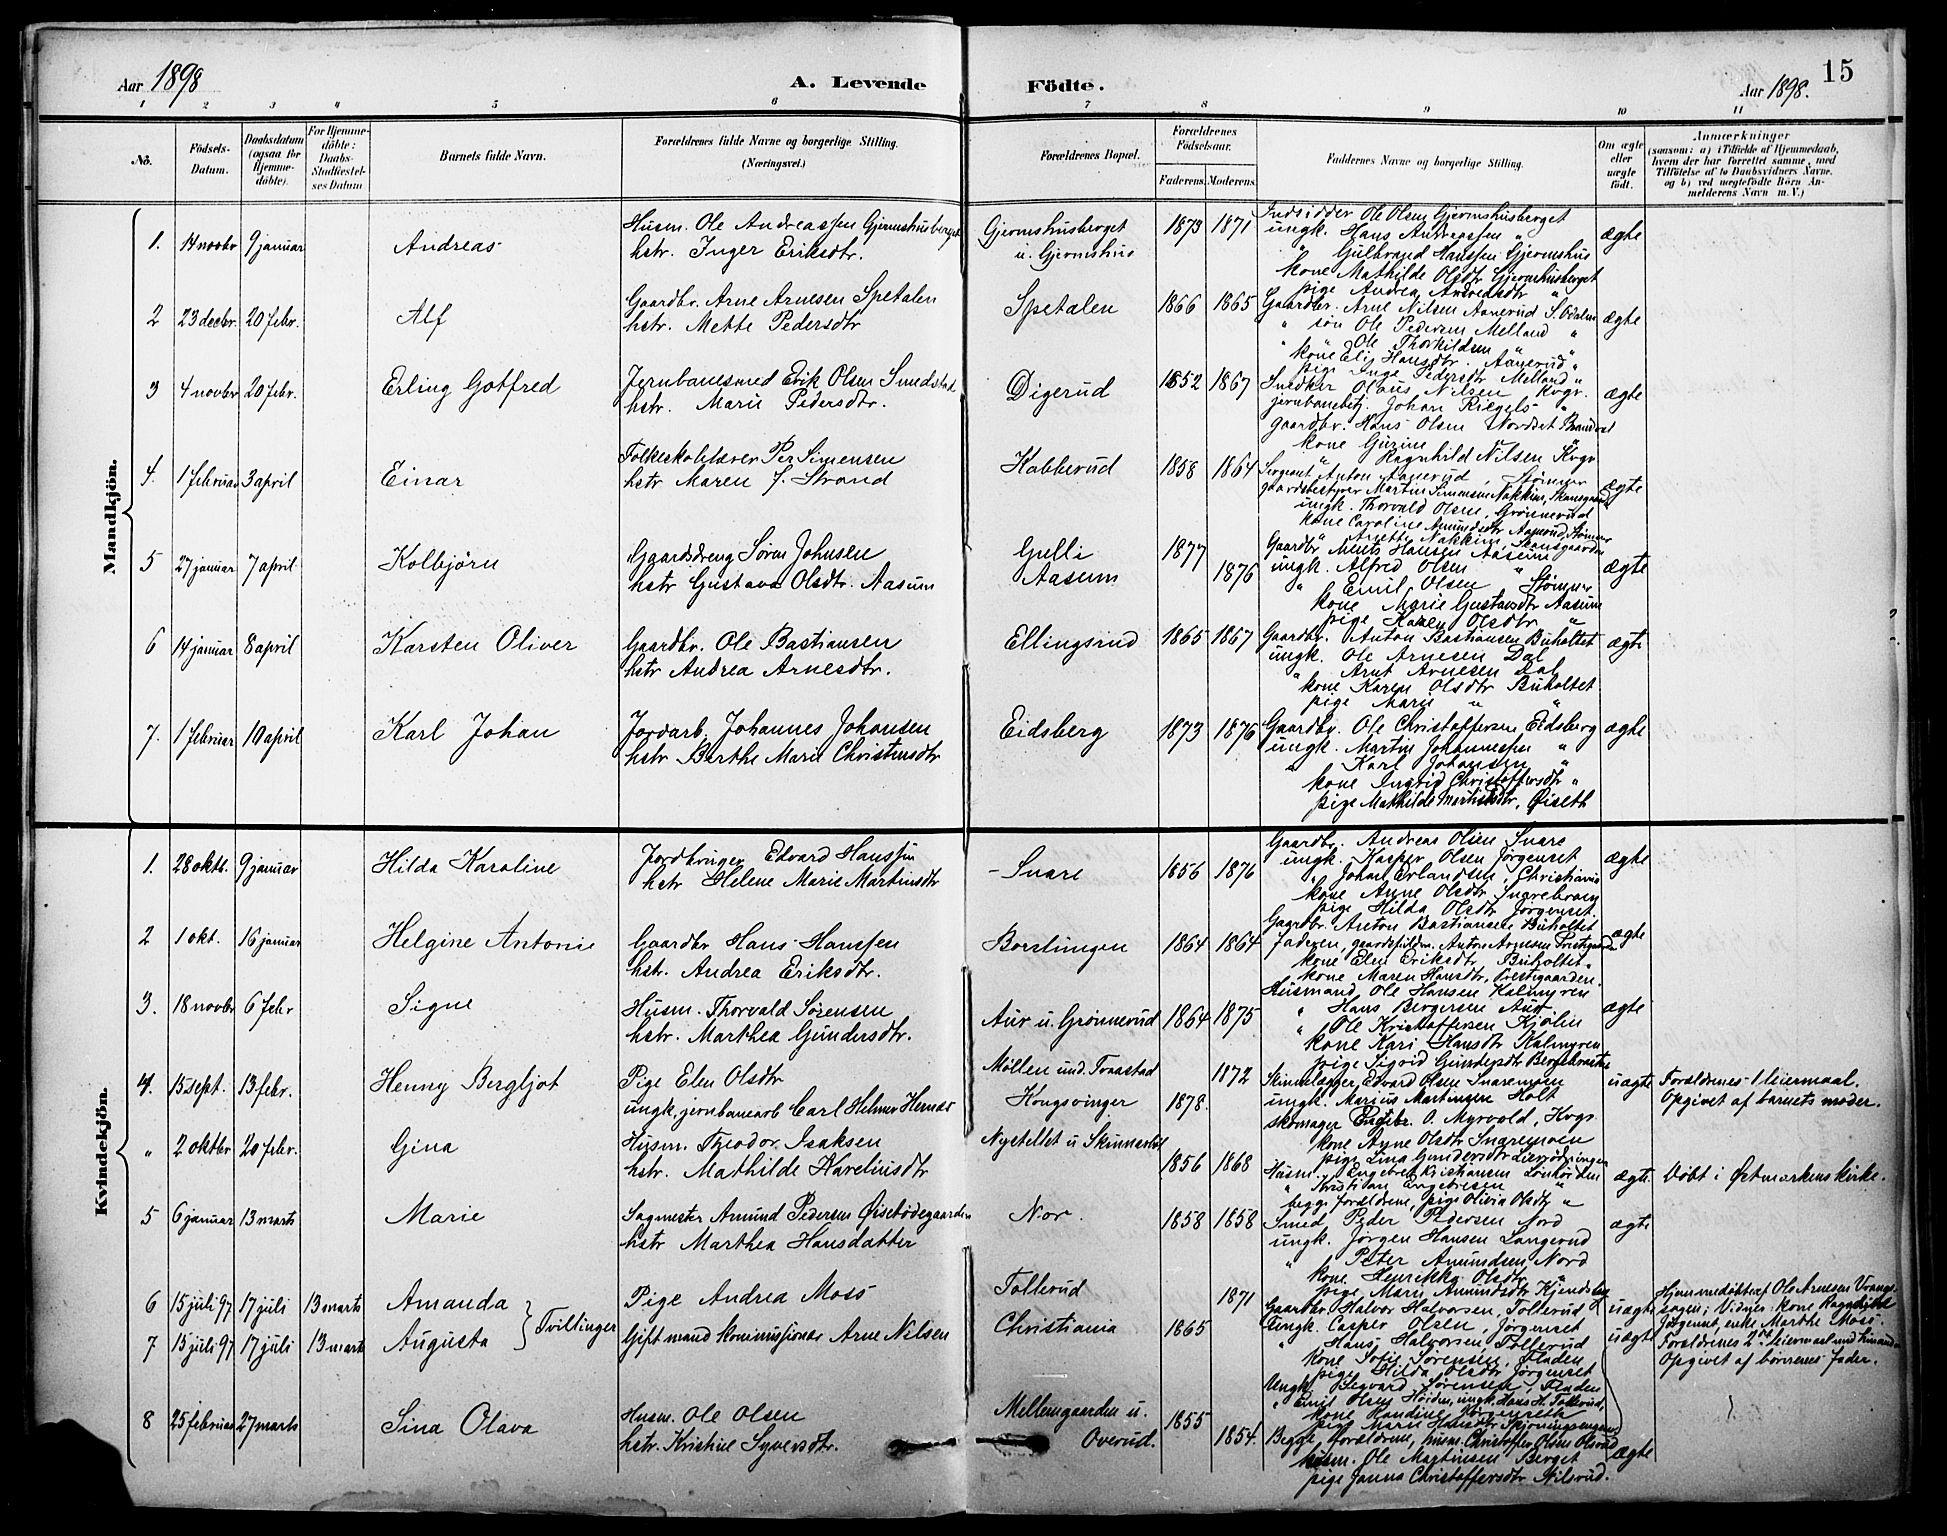 Aar 1898
A. Levende Födte.
Aar 1898. 15
1 2 3 4 5 6 7 8 9 10 11
No.
Födsels-Datum.
Daabsdatum (ogsaa for Hjemme-döbte).
For Hjemme-döbte: Daabs-Stadfæstel-ses Datum
Barnets fulde Navn.
Forældrenes fulde Navne og borgerlige Stilling. (Næringsvei.)
Forældrenes Bopæl.
Forældrenes Födselsaar.
Faderens. Moderens.
Faddernes Navne og borgerlige Stilling.
Om ægte eller uægte födt.
Anmærkninger
(saasom: a) i Tilfælde af Hjemmedaab,
hvem der har forrettet samme, med
Tilföielse af to Daabsvidners Navne,
og b) ved uægtefödte Börn An-
melderens Navn m. V.)
Mandkjön.
1. 14 novbr 9 januar Andreas
Husm. Ole Andreassen Gjermshusberget
hstr. Inger Eriksdtr.
Gjermshusberget
u. Gjermshus
1873 1871
Indsidder Ole Olsen Gjermshusberget
ungk. Hans Andreassen "
" Gulbrand Hanssen Gjermshus
kone Mathilde Olsdtr Gjermshusberget
pige Andrea Andreasdtr "
ægte
2 23 decbr. 20 febr. Alf
Gaardbr. Arne Arnesen Spetalen
hstr. Mette Pedersdtr
Spetalen
1866 1865
Gaardbr. Arne Nilsen Aanerud S. Odalen
" søn Ole Pedersen Melland "
" Ole Thorkildsen "
kone Elis Hansdtr. Aanerud "
pige Inge Pedersdtr Melland "
ægte
3 4 novbr 20 febr. Erling Gotfred
Jernbanesmed Erik Olsen Smedstad
hstr. Marie Pedersdtr.
Digerud
1852 1867
Snedker Olaus Nilsen Kvgr.
jernbanebetj. Johan Riegels "
gaardbr. Hans Olsen Nordset Brandval
kone Gurine "
" Ragnhild Nilsen Kvgr
ægte
4. 1 februar 3 april Einar
Folkeskolelærer Per Simensen
hstr Maren J. Strand
Kabberud
1858 1864
Sergeant Anton Aanerud, Strømmer
gaardsbestyrer Martin Simensen Nakkim, Skansgaarden
ungk. Thorvald Olsen, Grønnerud
kone Caroline Amundsdtr Aanerud, Strømmer
" Anette Nakkim, Skansgaarden
ægte
5 27 januar 7 april Kolbjörn
Gaardsdreng Søren Johnsen
hstr Gustava Olsdtr. Aasum
Gulli
Aasum
1877 1876
Gaardbr Ments Hansen Aasum
ungk. Alfred Olsen "
" Emil Olsen Strømmer
kone Marie Gustavsdtr Aasum
pige Karen Olsdtr "
ægte
6 14 januar 8 april Karsten Oliver
Gaardbr. Ole Bastiansen
hstr Andrea Arnesdtr.
Ellingsrud
1865 1867
Gaardbr. Anton Bastiansen Buholtet
ungk. Ole Arnesen Dal
" Arnt Arnesen Dal
kone Karen Olsdtr Buholtet
pige Marie " "
ægte
7. 1 februar 10 april Karl Johan
Jordarb. Johannes Johansen
hstr Berthe Marie Christensdtr
Eidsberg
1873 1876
Gaardbr. Ole Christoffersen Eidsberg
ungk. Martin Johannessen "
" Karl Johansen "
kone Ingrid Christoffersdtr "
pige Mathilde Martinsdtr, Øiseth
ægte
Kvindekjön.
1. 28 oktb. 9 januar Hilda Karoline
Jordbruger Edvard Hanssen
hstr Helene Marie Martinsdtr
Snare
1856 1876
Gaardbr. Andreas Olsen Snare
ungk. Kasper Olsen Jørgenset
" Johan Erlandsen, Christiania
kone Anne Olsdtr Snarebroen
pige Hilda Olsdtr Jørgenset.
ægte
2 1 okt. 16 januar Helgine Antonie
Gaardbr Hans Hanssen
hstr. Andrea Eriksdtr.
Borstingen
1864 1864
Gaardbr. Anton Bastiansen Buholtet
Faderen, gaardsfuldm. Anton Arnesen Prestgaarden
kone Elen Eriksdtr Buholtet
kone Maren Hansdtr, Prestgaarden.
ægte
3. 18 novbr 6 febr Signe
Husm. Thorvald Sørensen
hstr. Marthea Gundersdtr.
Aur u. Grønnerud
1864 1875
Husmand Ole Hansen Kalmyren
" Hans Bergersen Aur
" Ole Kristoffersen Kjölin
kone Kari Hansdtr Kalmyren
pige Sigrid Gundersdtr
ægte
4. 15 sept. 13 febr. Henny Bergljot
Pige Elen Olsdtr
ungk. jernbanearb Carl Helmer Hernæs
Møllen und. Traastad
Kongsvinger
1872
1878.
Edvard Olsen Snaremoen
ungk. Marius Martinsen Holt
skomager Engebr. O. Myrvold, Kvgr
kone Anne Olsdtr Snaremoen
pige Lina Gundersdtr
uægte
Forældrenes 1 leiermaal.
Opgivet af barnets moder.
" 2 oktbr 20 febr. Gina
Husm. Theodor Isaksen
hstr. Mathilde Kareliusdtr
Nystellet u Skinnarbøl
1856 1868
Husm. Engebret Kristiansen
" Kristian Engebretsen "
begge forældrene, pige Olivia Olsdtr "
ægte.
Döbt i Østmarkens kirke.
5 6 januar 13 marts Marie
Sagmester Amund Pedersen Øisebødegaarden
hstr Marthea Hansdatter
Nor.
1858 1858
Smed Peder Pedersen Nord
ungk. Jørgen Hansen Langerud
" Peter Amundsen Nord
kone Henrikka Olsdtr "
pige Marie Amundsdtr
ægte
6 15 juli 97 17 juli 13 marts Amanda
7 15 juli 97 17 juli 13 marts Augusta
} Tvillinger
Pige Andrea Moss
Gift mand kommissionær Arne Nilsen
Tollerud
Christiania
1871
1865
Gaardbr. Halvor Halvorsen, Tollerud
Ungk. Casper Olsen, Jørgenset
" Hans Halvorsen Tollerud
kone Sofie Sørensen, Fladen
pige Hilda Olsdtr Jørgenset
Ungk. Sigvard Sørensen, Fladen
" Emil Olsen Høiden, ungk. Hans H. Tollerud,
kone Handine Jørgenseth
pige Marie Hansdtr
uægte
uægte
Hjemmedøbte af Ole Arnesen Vrangs-
sagen; Vidner: kone Ragnhild
Jørgensdt, enke Marthe Moss.
Forældrenes 2det leiermaal med hinanden
Opgivet af børnenes fader.
8 25 februar 27 marts Sina Olava
Husm. Ole Olsen
hstr. Kristine Syversdtr.
Mellemgaarden u.
Overud.
1855
1854.
Begge forældrene, husm. Christoffer Olsen Olsrud
husm. Ole Martinsen Berget
pige Janna Christoffersdtr Nilsrud.
ægte